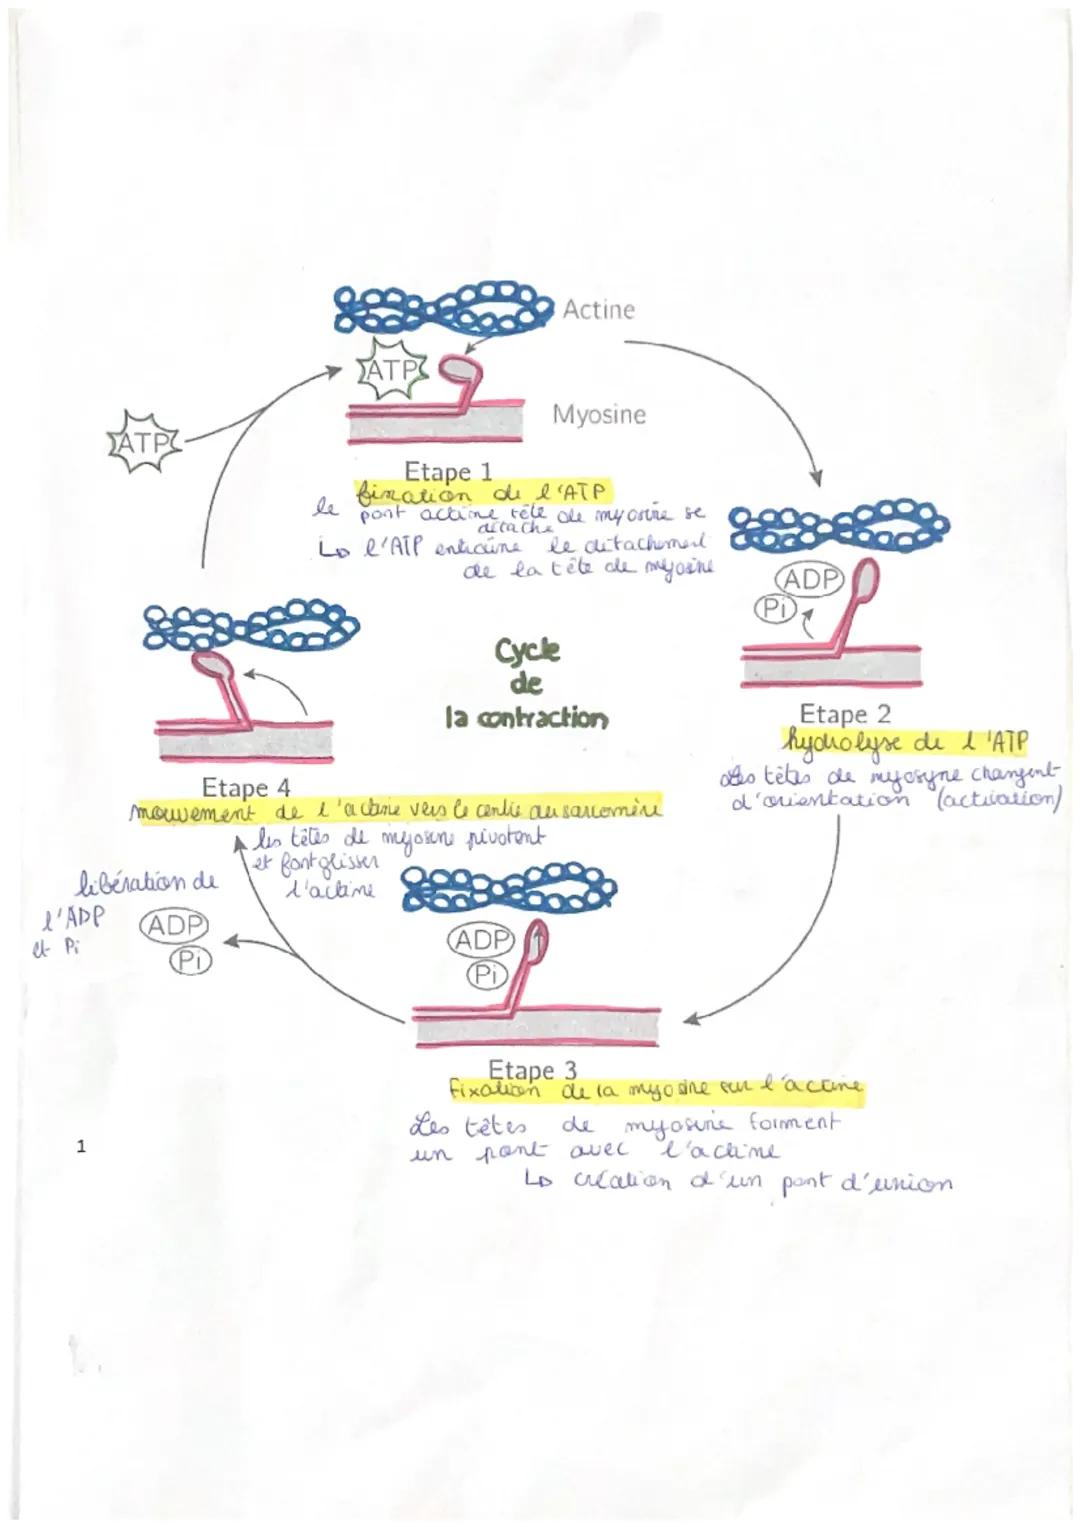 Actine
ATP
ATP
Myosine
Etape 1
fixation de l'ATP
le pont actine tête de myosine se
détache
↳ l'ATP entraîne le détachement
de la tête de myosine
ADP
Pi
Etape 2
hydrolyse de l'ATP
Les têtes de myosyne changent
d'orientation (activation)
Cycle
de
la contraction
Etape 4
mouvement de l'actine vers le centre du sarcomère
les têtes de myosine pivotent
et font glisser
l'actine
libération de
l'ADP
et Pi
ADP
Pi
ADP
Pi
Etape 3
Fixation de la myosine sur l'actine
Les têtes de myosine forment
un pont avec l'actine
↳ création d'un pont d'union
1